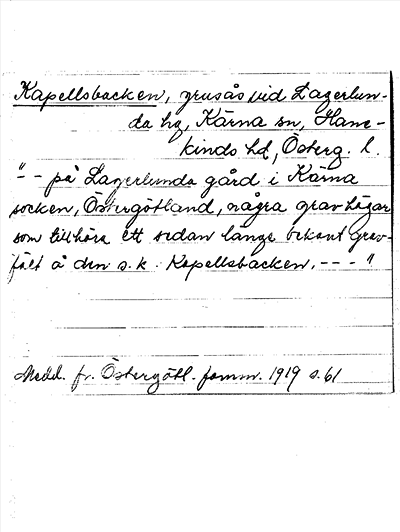 Kapellsbacken, grusås vid Lagerlun-
da hg, Kärna sn, Hane-
kinds hd, Österg. l.
"-- på Lagerlunda gård i Kärna
socken, Östergötland, några gravhögar
som tillhöra ett sedan länge bekant grav-
fält å den s.k. Kapellsbacken, --- "
Medd. fr. Östergötl. fornm. 1919 s. 61